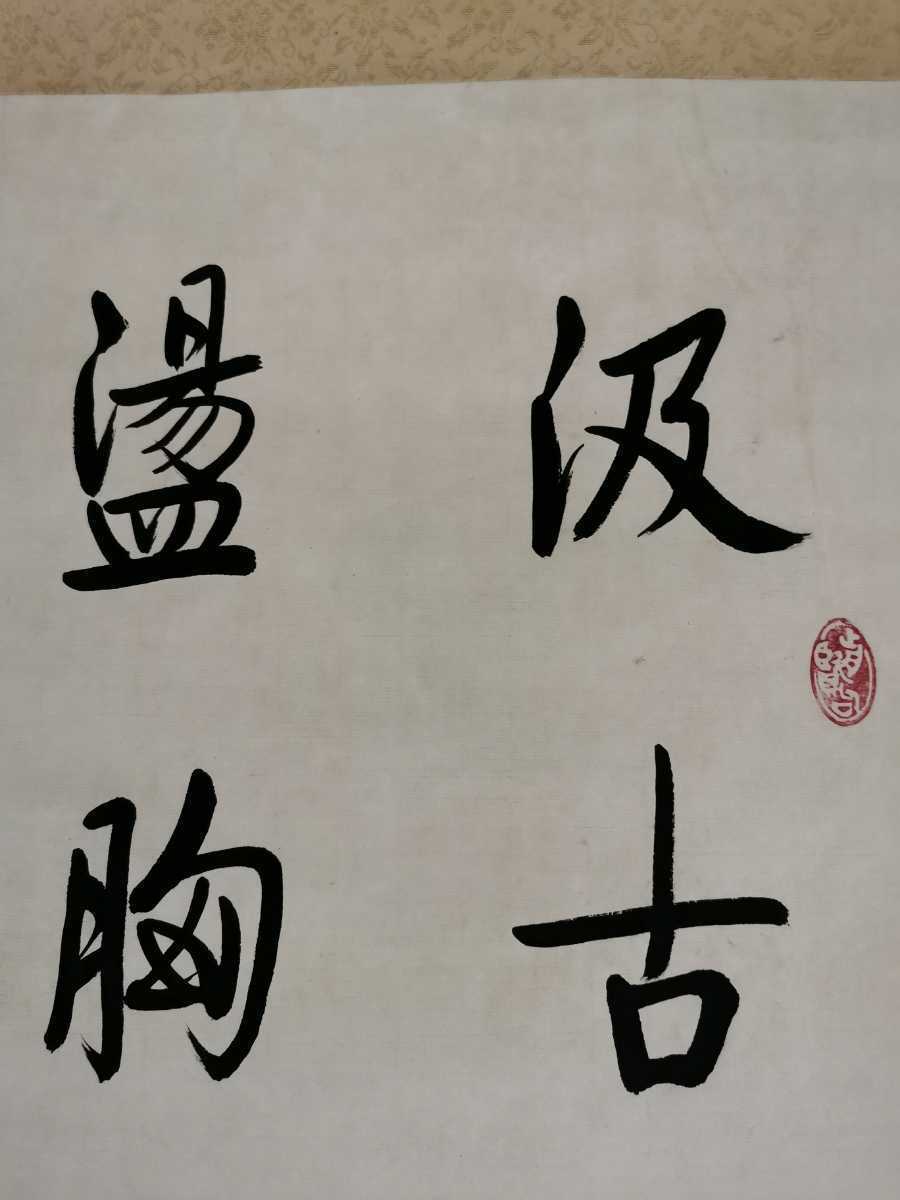 汲古
盪胸